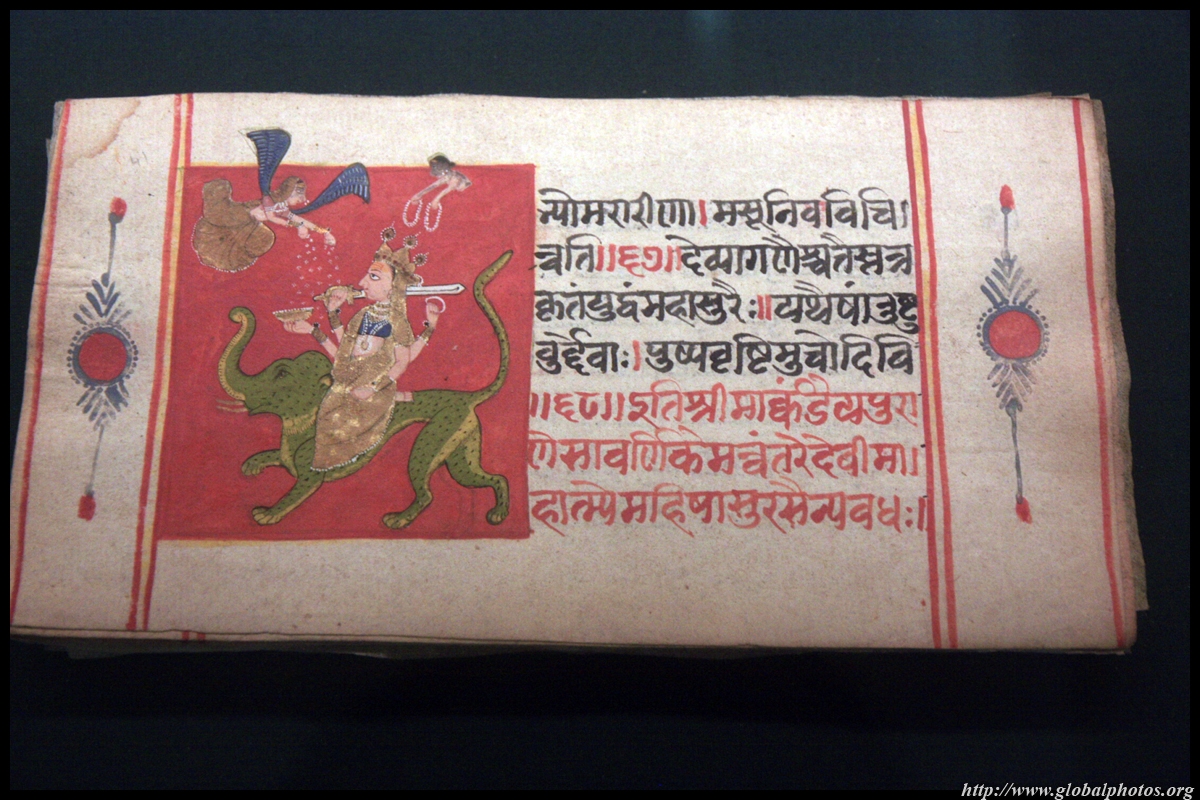 भ्योमरारीणा।मसूनिवविचि।
न्वति॥६७॥देव्यागणैश्चतैस्तत्र
कृतंयुद्धंमहासुरैः॥यथैषांतुष्टु
वुर्द्देवाः।पुष्पवृष्टिमुचोदिवि
॥६८॥इतिश्रीमार्क्कंडेयपुरा
णेसावर्णिकेमन्वंतरेदेवीमा।
हात्म्येमहिषासुरसैन्यवधः॥
http://www.globalphotos.org